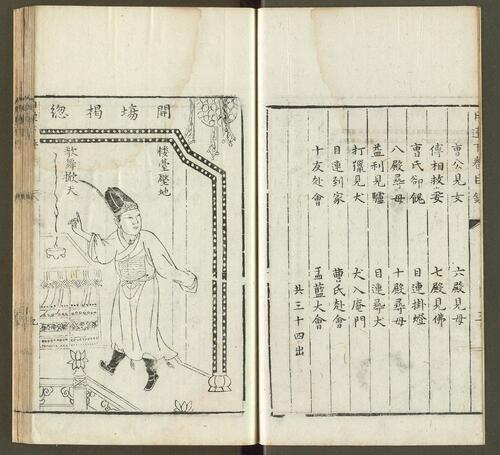 曹公見女　六殿見母
傅相救妻　七殿見佛
曹氏卻餽　目連掛燈
八殿尋母　十殿尋母
益利見驢　目連尋犬
打獵見犬　犬入庵門
目連到家　曹氏赴會
十友赴會　盂蘭大會
共三十四出
開塲揭惚
楼臺壓地
歌聲掀天